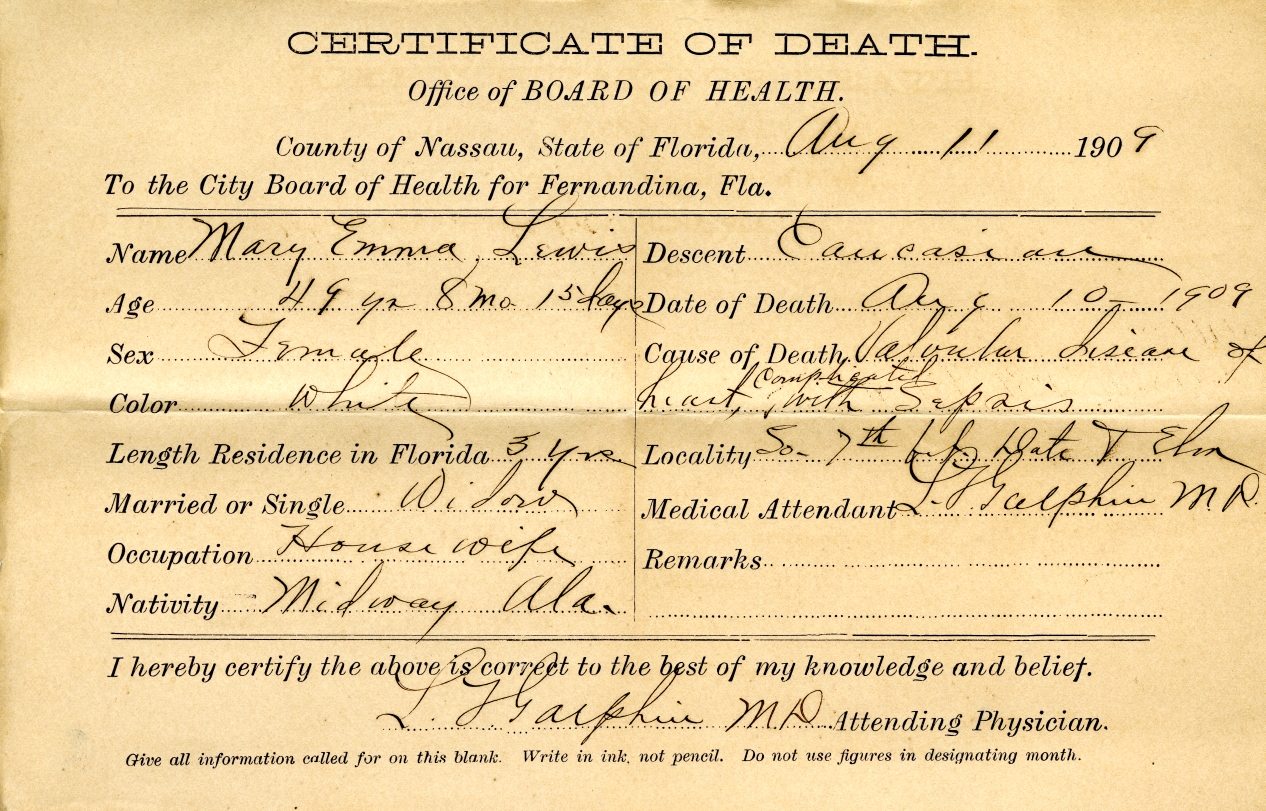 CERTIFICATE OF DEATH.
Office of BOARD OF HEALTH.
County of Nassau, State of Florida, Aug 11 1909
To the City Board of Health for Fernandina, Fla.
Name Mary Emma Lewis
Age 49 yrs 8 Mo 15 days
Sex Female
Color White
Length Residence in Florida 3 yrs
Married or Single Widow
Occupation House wife
Nativity Midway Ala.
Descent Caucasian
Date of Death Aug 10 - 1909
Cause of Death Valvular disease of
complicated
heart, with Sepsis
Locality So. 7th bet Date & Elm
Medical Attendant L. Galphin M.D.
Remarks
I hereby certify the above is correct to the best of my knowledge and belief.
L. Galphin M.D. Attending Physician.
Give all information called for on this blank. Write in ink, not pencil. Do not use figures in designating month.